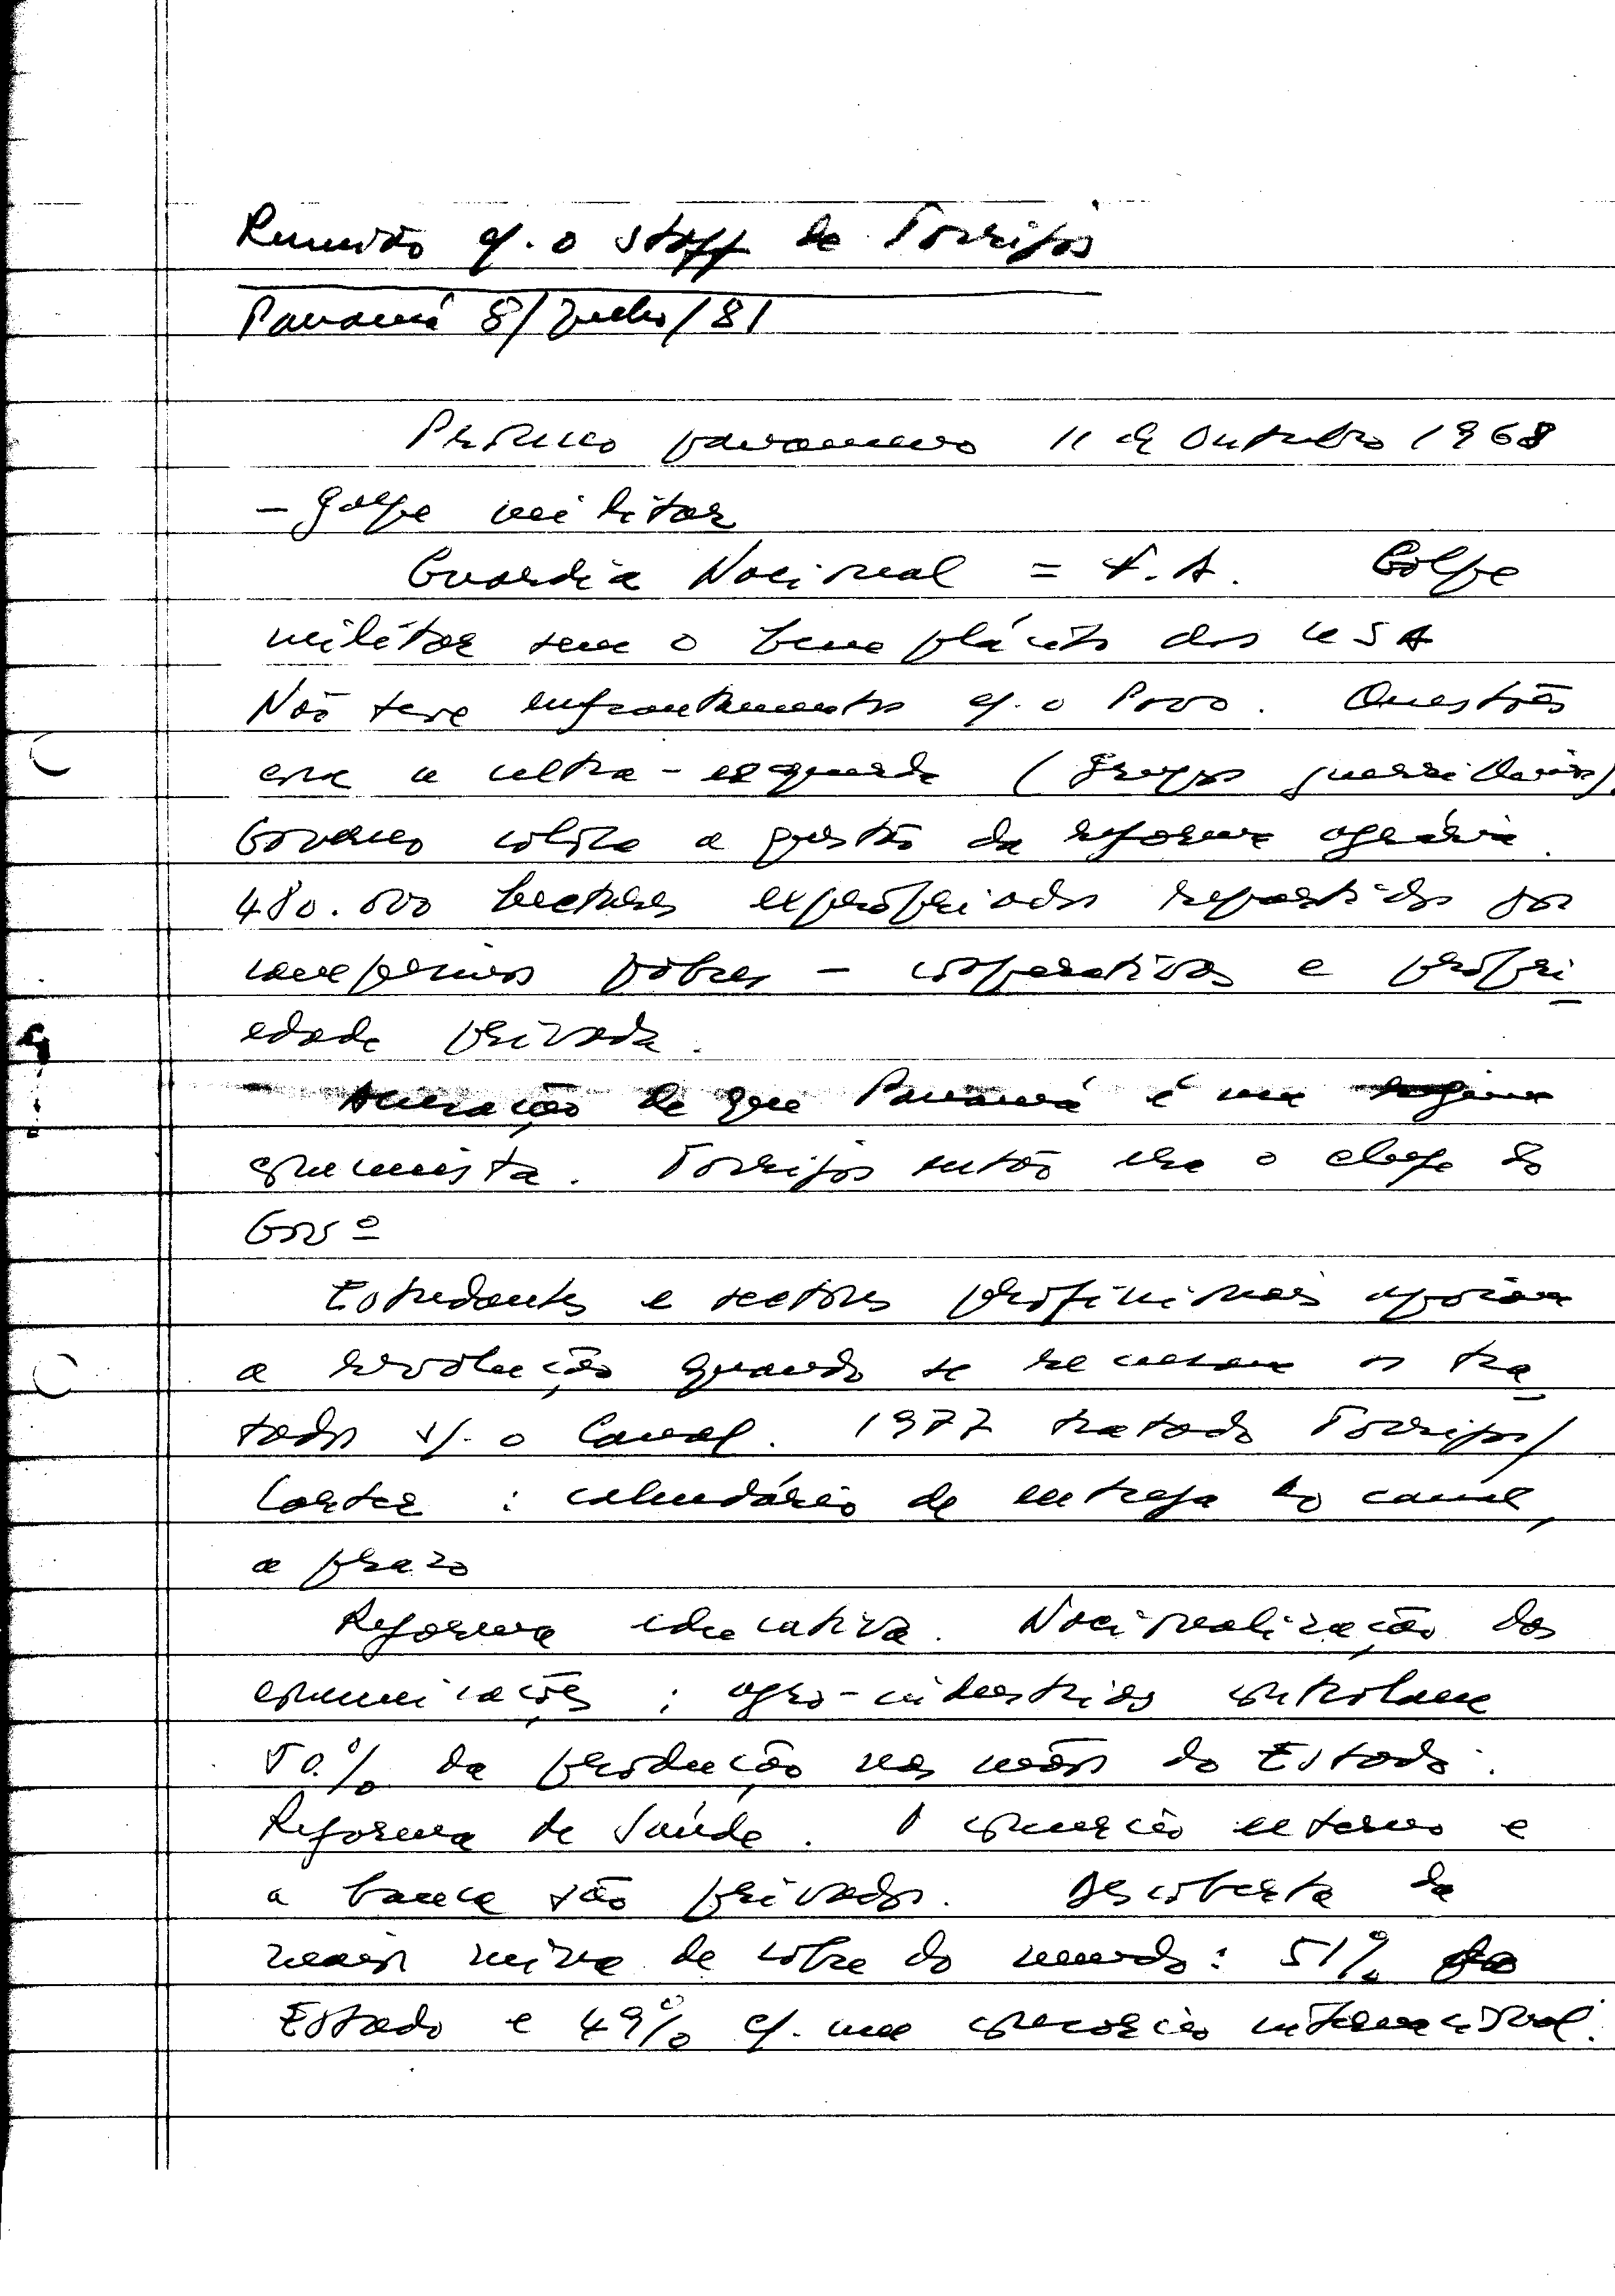 Reunião c/. o staff de Torrijos
Panamá 8/Julho/81
Processo panameno 11 de Outubro 1968
- golpe militar
Guardia Nacional = F.A. Golpe
militar sem o beneplácito dos USA
Não teve enfrentamentos c/. o Povo. Questões
era a ultra-esquerda (grupos guerrilheiros).
Governo coloca a questão da reforma agrária.
480.000 hectares expropriados repartidos por
camponeses pobres - cooperativas e propri
edade privada.
Acusação de que Panamá é um regime
comunista. Torrijos então era o chefe do
Govº
Estudantes e sectores profissionais apoiam
a revolução quando se recusam os tra
tados s/. o Canal. 1977 tratado Torrijos/
Carter : calendário de entrega do canal,
a prazo
Reforma educativa. Nacionalização das
comunicações ; agro-industrias controlam
50% da produção nas mãos do Estado.
Reforma de Saúde. O comércio externo e
a banca são privados. Descoberta da
maior mina de cobre do mundo: 51% do
Estado e 49% c/. um consórcio internacional.